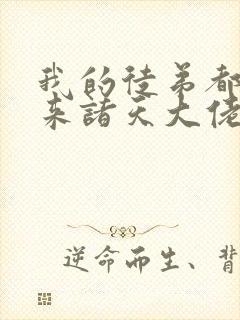 我的徒弟都
来諸天大佬
逆命而生、背